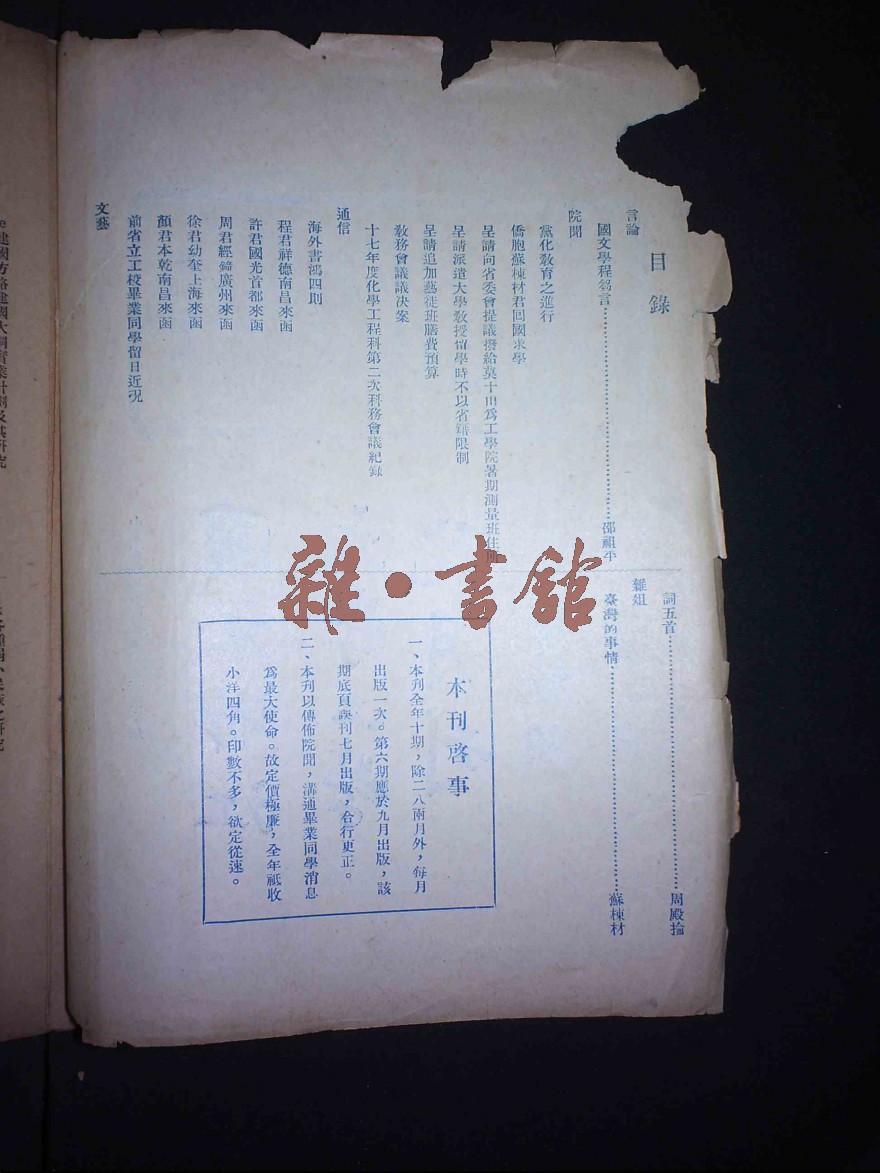 目錄
言論
國文學程芻言……………………………邵祖平
院聞
黨化教育之進行
僑胞蘇棟材君囘國求學
呈請向省委會提議撥給莫干山爲工學院暑期測量班住所
呈請派遣大學教授留學時不以省籍限制
呈請追加藝徒班膳費預算
敎務會議議決案
十七年度化學工程科第二次科務會議紀錄
通信
海外書鴻四則
程君祥德南昌來函
許君國光首都來函
周君經鏑廣州來函
徐君幼奎上海來函
顏君本乾南昌來函
前省立工校畢業同學留日近況
文藝
詞五首……………………………周殿掄
雜俎
臺灣的事情……………………………蘇棟材
本刊啓事
一、本刊全年十期，除二八兩月外，每月
出版一次。第六期應於九月出版，該
期底頁誤刊七月出版，合行更正。
二、本刊以傳佈院聞，溝通畢業同學消息
爲最大使命。故定價極廉，全年祇收
小洋四角。印數不多，欲定從速。
雜·書館